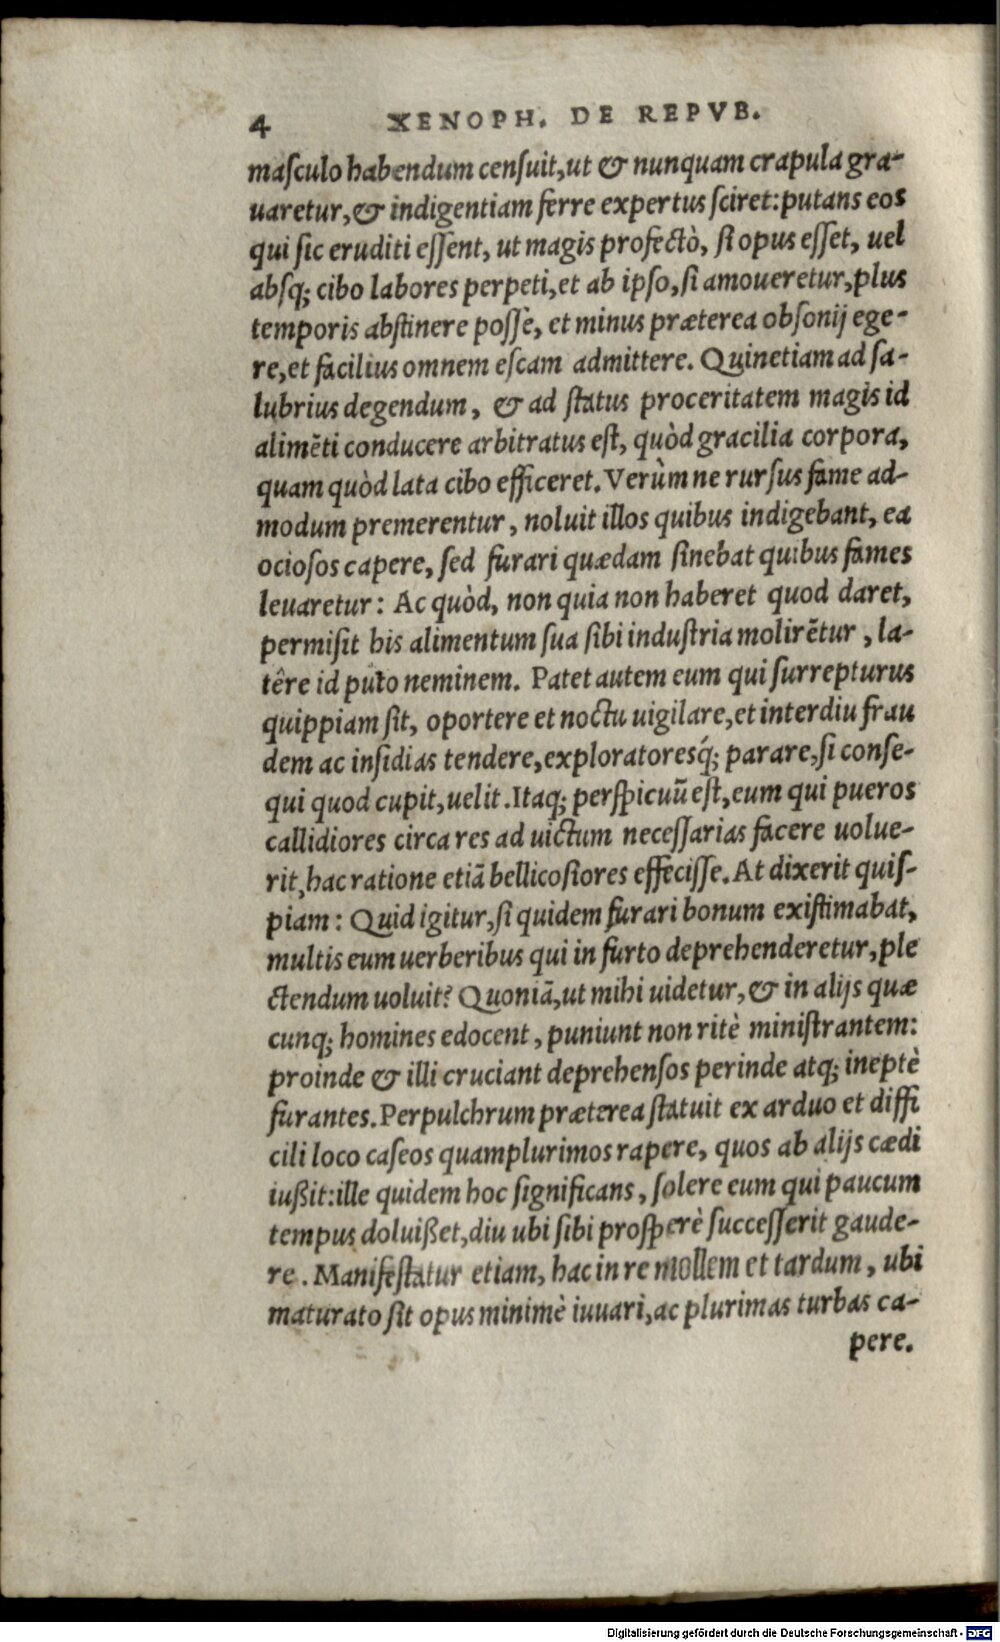 4 XENOPH. DE REPVB.
maſculo habendum cenſuit, ut & nunquam crapula gra-
uaretur, & indigentiam ferre expertus ſciret: putans eos
qui ſic eruditi eſſent, ut magis profectò, ſi opus eſſet, uel
abſq; cibo labores perpeti, et ab ipſo, ſi amoueretur, plus
temporis abſtinere poſſe, et minus præterea obſonij ege-
re, et facilius omnem eſcam admittere. Quinetiam ad ſa-
lubrius degendum, & ad ſtatus proceritatem magis id
alimẽti conducere arbitratus eſt, quòd gracilia corpora,
quam quòd lata cibo efficeret. Verùm ne rurſus fame ad-
modum premerentur, noluit illos quibus indigebant, ea
ocioſos capere, ſed furari quædam ſinebat quibus fames
leuaretur: Ac quòd, non quia non haberet quod daret,
permiſit his alimentum ſua ſibi induſtria molirẽtur, la-
têre id puto neminem. Patet autem eum qui ſurrepturus
quippiam ſit, oportere et noctu uigilare, et interdiu frau
dem ac inſidias tendere, exploratoresq́; parare, ſi conſe-
qui quod cupit, uelit. Itaq; perſpicuũ eſt, eum qui pueros
callidiores circa res ad uictum neceſſarias facere uolue-
rit, hac ratione etiã bellicoſiores effeciſſe. At dixerit quiſ-
piam: Quid igitur, ſi quidem furari bonum exiſtimabat,
multis eum uerberibus qui in furto deprehenderetur, ple
ctendum uoluit? Quoniã, ut mihi uidetur, & in alijs quæ
cunq; homines edocent, puniunt non ritè miniſtrantem:
proinde & illi cruciant deprehenſos perinde atq; ineptè
furantes. Perpulchrum præterea ſtatuit ex arduo et diffi
cili loco caſeos quamplurimos rapere, quos ab alijs cædi
iußit: ille quidem hoc ſignificans, ſolere eum qui paucum
tempus doluißet, diu ubi ſibi proſperè ſucceſſerit gaude-
re. Manifeſtatur etiam, hac in re mollem et tardum, ubi
maturato ſit opus minimè iuuari, ac plurimas turbas ca-
pere.
Digitalisierung gefördert durch die Deutsche Forschungsgemeinschaft - DFG